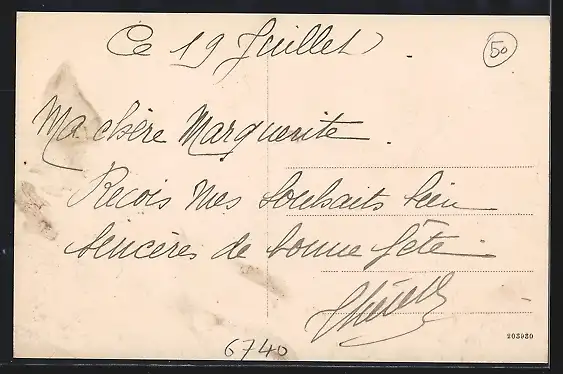 Ce 19 Juillet
50
Ma chère Marguerite.
Recois mes souhaits bien
sincères de bonne fête.
203980
6740